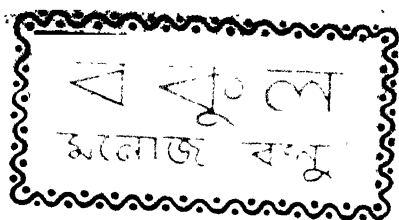 বকুল
মনোজ বসু